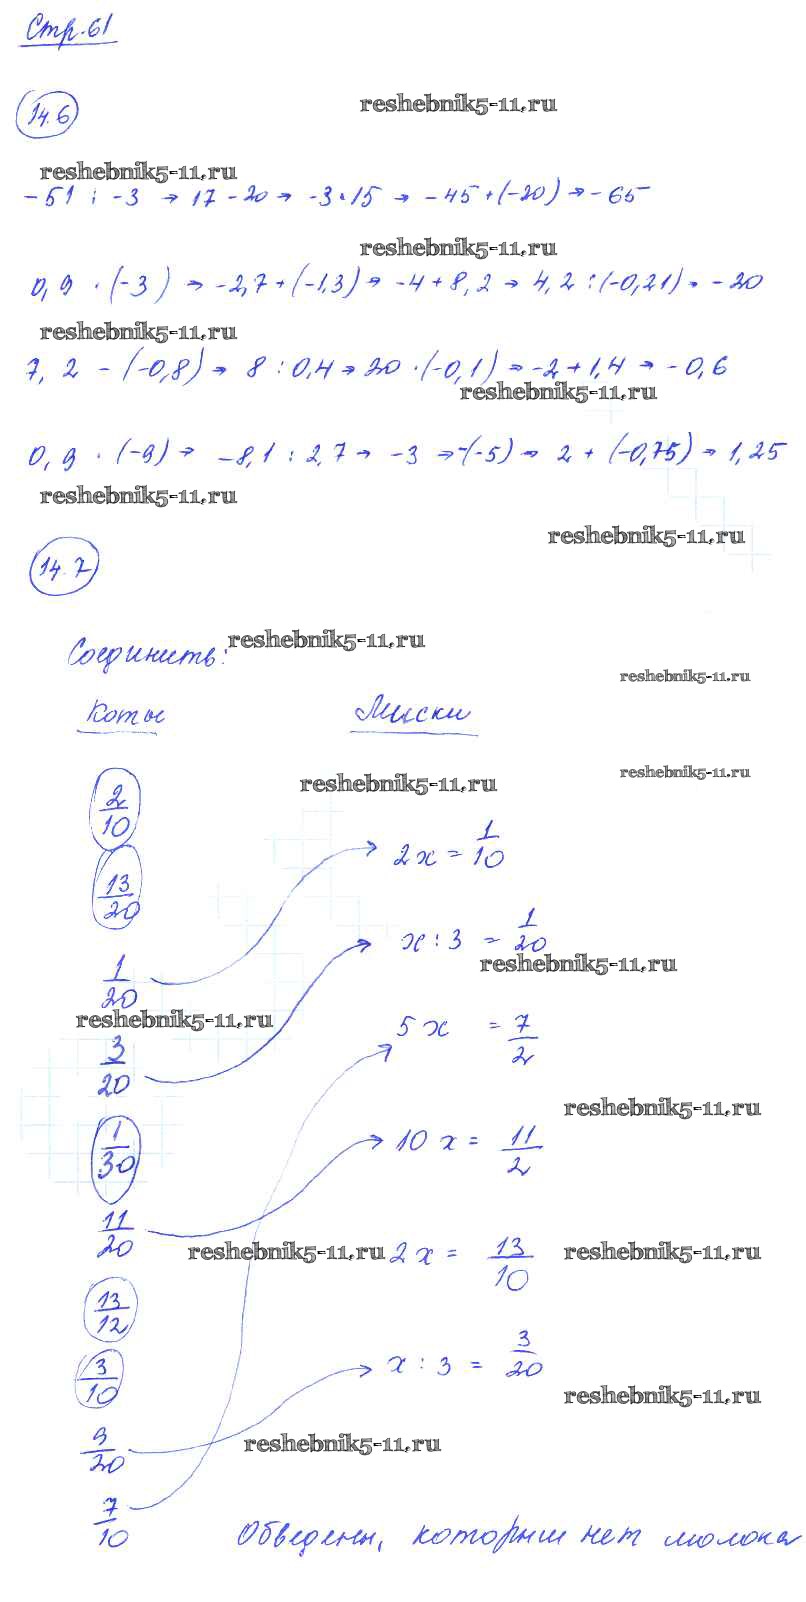 Стр. 61
14.6
reshebnik5-11.ru
reshebnik5-11.ru
-51 : -3 → 17 -20 → -3 · 15 → -45 + (-20) → -65
reshebnik5-11.ru
0,9 · (-3) → -2,7 + (-1,3) → -4 + 8,2 → 4,2 : (-0,21) → -20
reshebnik5-11.ru
7,2 - (-0,8) → 8 : 0,4 → 20 · (-0,1) → -2 + 1,4 → -0,6
reshebnik5-11.ru
0,9 · (-9) → -8,1 : 2,7 → -3 → -(-5) → 2 + (-0,75) → 1,25
reshebnik5-11.ru
reshebnik5-11.ru
14.7
Соединить:
reshebnik5-11.ru
reshebnik5-11.ru
Коты Миски
reshebnik5-11.ru
reshebnik5-11.ru
2/10
2x = 1/10
13/20
x : 3 = 1/20
reshebnik5-11.ru
1/20
reshebnik5-11.ru
5x = 7/2
3/20
reshebnik5-11.ru
1/30
10x = 11/2
11/20
reshebnik5-11.ru
2x = 13/10
reshebnik5-11.ru
13/12
x : 3 = 3/20
3/10
reshebnik5-11.ru
9/20
reshebnik5-11.ru
7/10
Обведены, которым нет молока